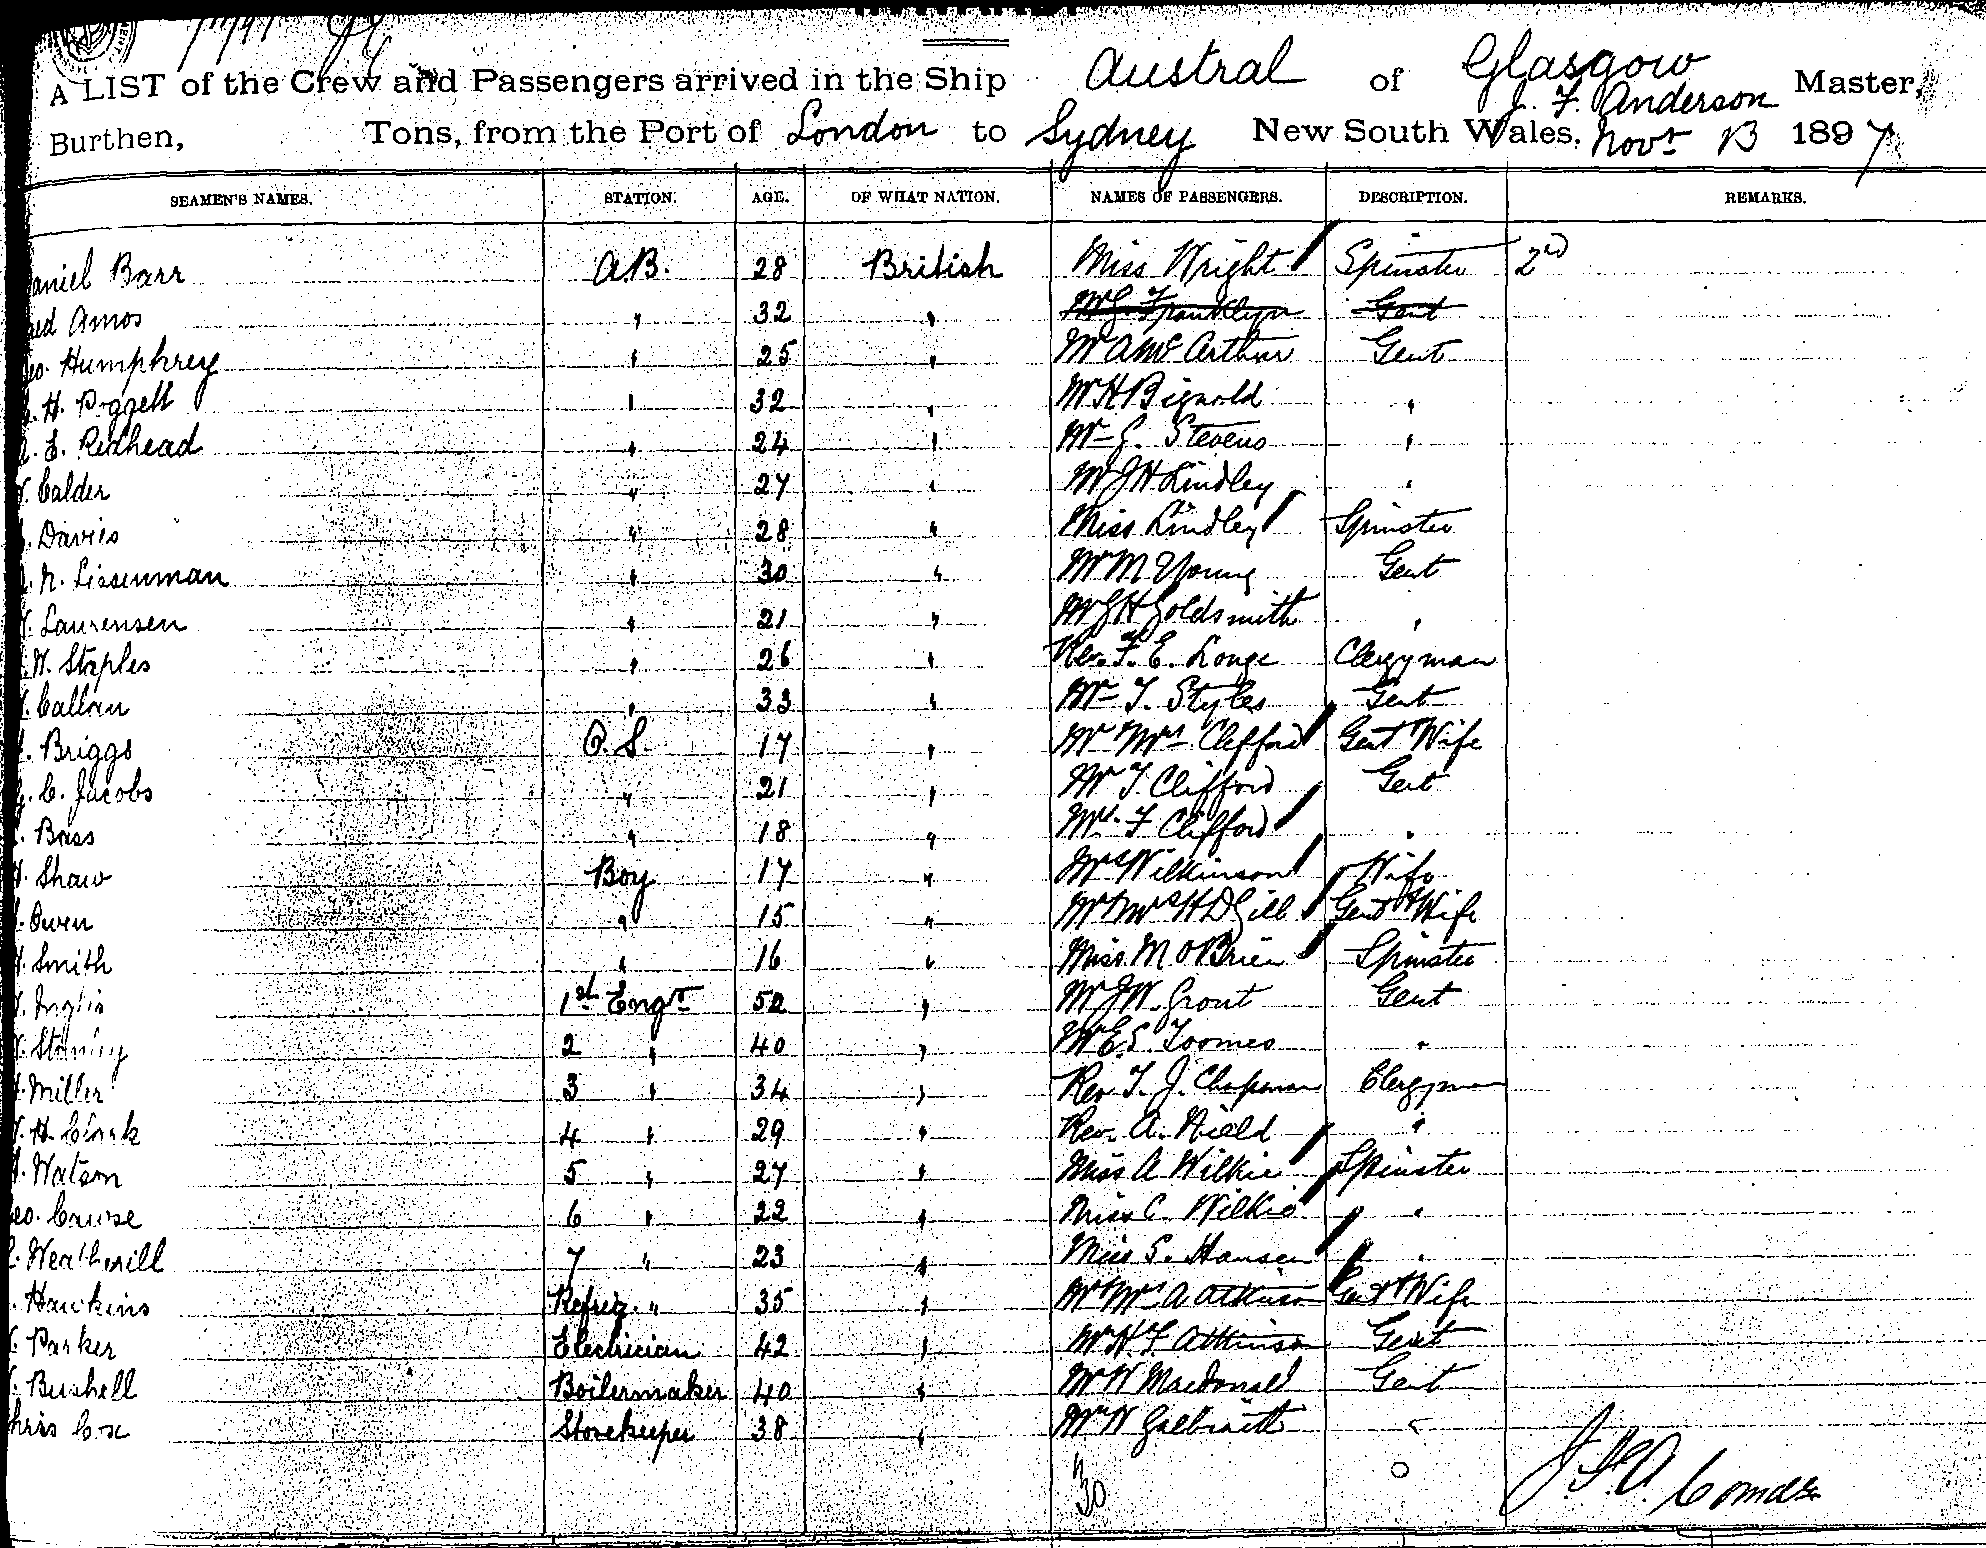 A LIST of the Crew and Passengers arrived in the Ship Austral of Glasgow
J. F. Anderson Master,
Burthen, Tons, from the Port of London to Sydney New South Wales, Novr 13 1897
SEAMEN'S NAMES. STATION. AGE. OF WHAT NATION. NAMES OF PASSENGERS. DESCRIPTION. REMARKS.
aniel Barr A.B. 28 British Miss Wright Spinster 2nd
red Amos " 32 " Mr G. Franklyn Gent
eo. Humphrey " 25 " Mr A Mc Arthur Gent
H. Poggett " 32 " Mr H Bignold "
E. Redhead " 24 " Mr G. Stevens "
Calder " 27 " Mr J H Lindley "
Davies " 28 " Miss Lindley Spinster
N. Lissenman " 30 " Mr M Young Gent
Laurensen " 21 " Mr G H Goldsmith "
W. Staples " 26 " Rev. F. E. Longe Clergyman
Callan " 33 " Mr T. Styles Gent
Briggs O.S. 17 " Mr Mrs Clifford Gent Wife
C. Jacobs " 21 " Mr T. Clifford Gent
Bass " 18 " Mr F Clifford "
Shaw Boy 17 " Mrs Wilkinson Wife
Owen " 15 " Mr & Mrs H D Gill Gent & Wife
Smith " 16 " Miss M O'Brien Spinster
Inglis 1st Engr 52 " Mr J W. Grout Gent
2 " 40 " Mr E. S. Toomes "
Miller 3 " 34 " Rev T. J. Chapman Clergyman
H. Clark 4 " 29 " Rev. A. Nield "
Watson 5 " 27 " Miss A Wilkie Spinster
eo. Cruise 6 " 22 " Miss C. Wilkie "
Weatherill 7 " 23 " Miss S. Hansen "
Hawkins Refrig. " 35 " Mr & Mrs A Atkinson Gent & Wife
Parker Electrician 42 " Mr H F Atkinson Gent
Bushell Boilermaker 40 " Mr W Macdonald Gent
hris Cox Storekeeper 38 " Mr W Galbraith "
30
J. F. A. Comdr